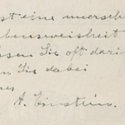 ist eine unersch
ebensweisheit
ssen Sie oft dari
n Sie dabei
A. Einstein.